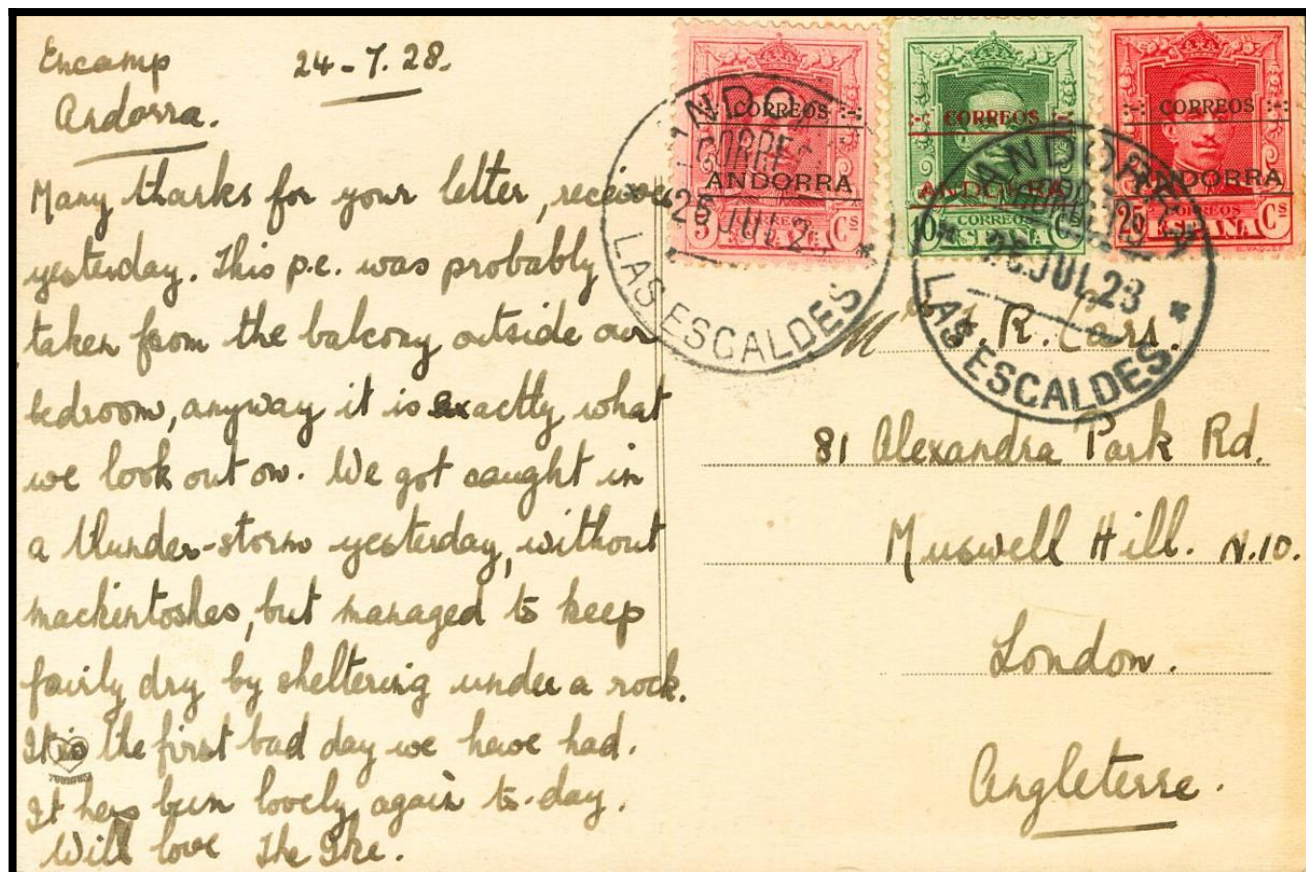 Encamp 24-7.28.
Andorra.
Many thanks for your letter, received
yesterday. This p.c. was probably
taken from the balcony outside our
bedroom, anyway it is exactly what
we look out on. We got caught in
a thunder-storm yesterday, without
mackintoshes, but managed to keep
fairly dry by sheltering under a rock.
It is the first bad day we have had.
It has been lovely again to-day.
Will love The
CORREOS
ANDORRA
5 Cs
CORREOS
ANDORRA
CORREOS
10 ESPAÑA Cs
CORREOS
ANDORRA
CORREOS
25 ESPAÑA Cs
ANDORRA
CORREOS
25 JUL 2
LAS ESCALDES
ANDORRA
JUL.23
LAS ESCALDES
R. Carr.
81 Alexandra Park Rd.
Muswell Hill. N.10.
London.
Angleterre.